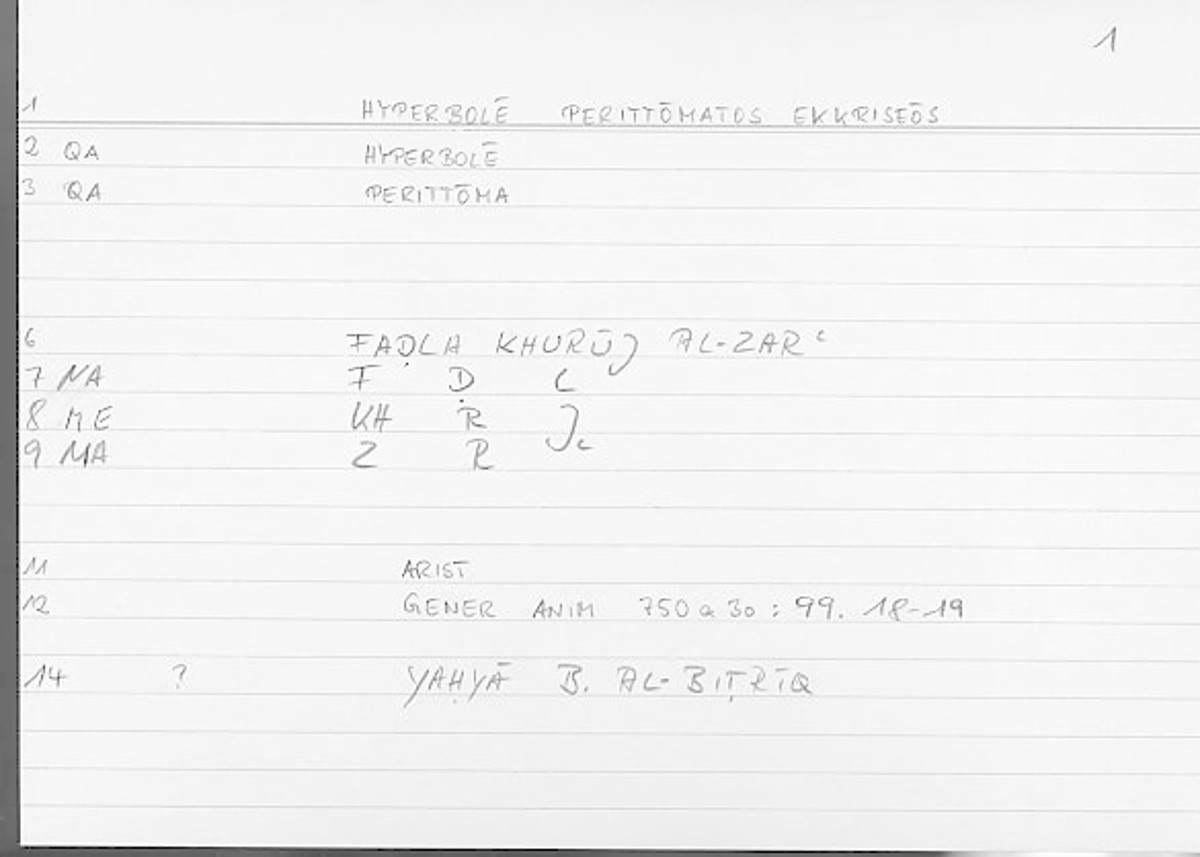 1
1 HYPERBOLĒ PERITTŌMATOS EKKRISEŌS
2 QA HYPERBOLĒ
3 QA PERITTŌMA
6 FAḌLA KHURŪJ AL-ZARʿ
7 NA F Ḍ L
8 ME KH R J
9 MA Z R ʿ
11 ARIST
12 GENER ANIM 750 a 30 : 99. 18-19
14 ? YAḤYĀ B. AL-BIṬRĪQ